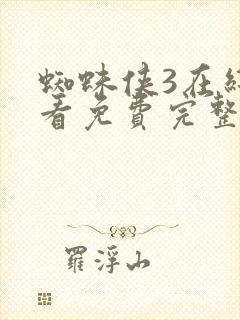 蜘蛛侠3在
看免費完整
羅浮山